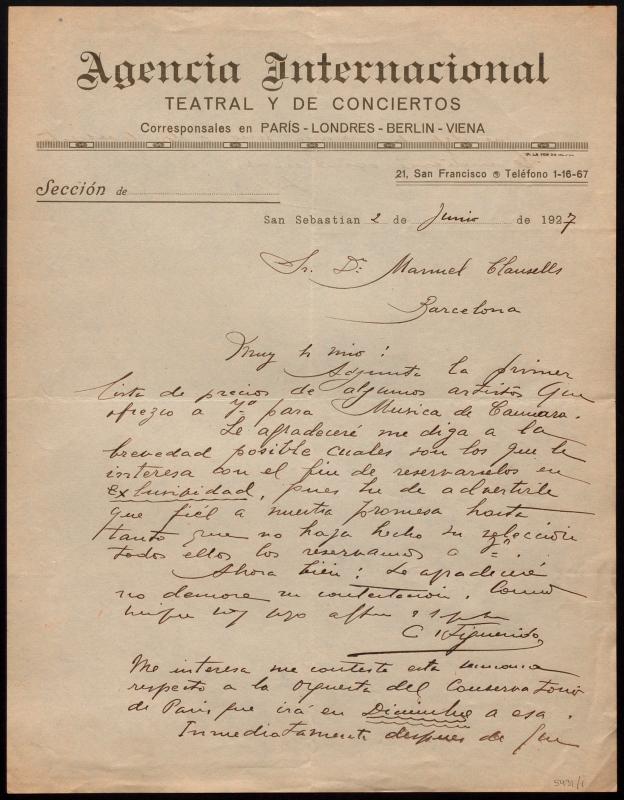 Agencia Internacional
TEATRAL Y DE CONCIERTOS
Corresponsales en PARÍS - LONDRES - BERLIN - VIENA
21, San Francisco Teléfono 1-16-67
Sección de
San Sebastian 2 de Junio de 1927
Sr. Dn. Manuel Clausells
Barcelona
Muy Sr mio:
Adjunta la primer
lista de precios de algunos artistas que
ofrezco a Vd para Musica de Camara.
Le agradeceré me diga a la
brevedad posible cuales son los que le
interesa con el fin de reservarselos en
exclusividad, pues he de advertirle
que fiél a nuestra promesa hasta
tanto que no haya hecho su selección
todos ellos los reservamos a Vd.
Ahora bien: Le agradeceré
no demore su contestacion. Como
siempre soy suyo affmo
C. Figuerido
Me interesa me conteste esta semana
respecto a la orquesta del Conservatorio
de Paris que irá en Diciembre a esa.
Inmediatamente despues de que
5491/1